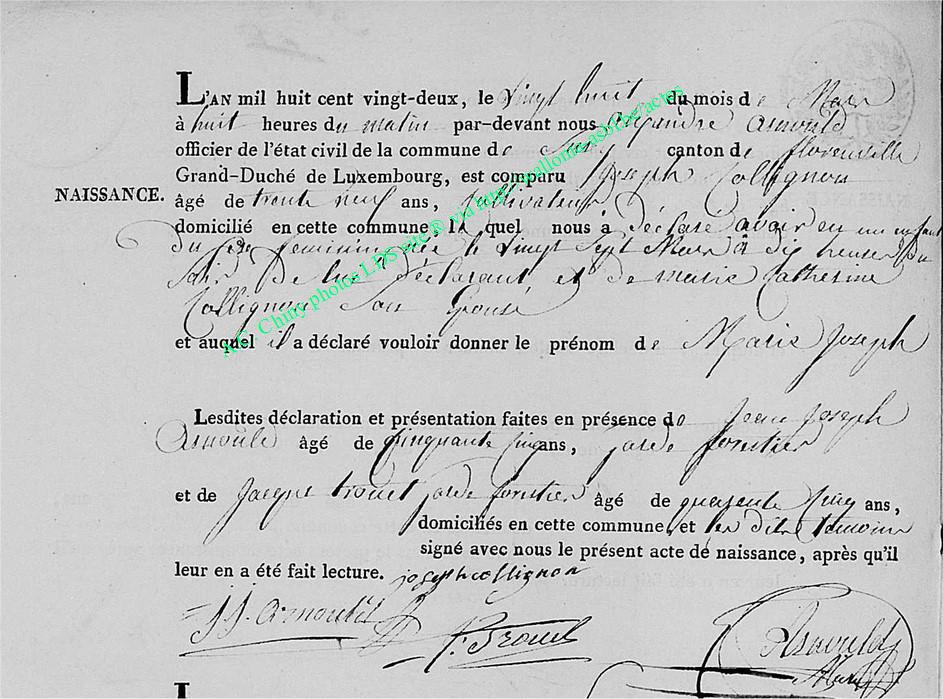 L'AN mil huit cent vingt-deux, le Vingt huit du mois de Mars
à huit heures du matin par-devant nous Arnould
officier de l'état civil de la commune de canton de florenville
Grand-Duché de Luxembourg, est comparu Joseph Collignon
NAISSANCE.
âgé de trente neuf ans, Cultivateur
domicilié en cette commune, le quel nous à déclaré avoir eu un enfant
du sexe feminin née le Vingt Sept Mars à dix heures du
Soir De lui déclarant et de marie Catherine
Collignon Son Epouse
et auquel il a déclaré vouloir donner le prénom de Marie Joseph
Lesdites déclaration et présentation faites en présence de Jean Joseph
Arnould âgé de Cinquante Cinq ans, garde forestier
et de Jacque garde forestier âgé de quarente Cinq ans,
domiciliés en cette commune, et les dits temoins
signé avec nous le présent acte de naissance, après qu'il
leur en a été fait lecture. joseph collignon
JJ. Arnould
Arnould
AG. Chiny photos LDS site ® via http://wallonie.asbl.be/actes
L